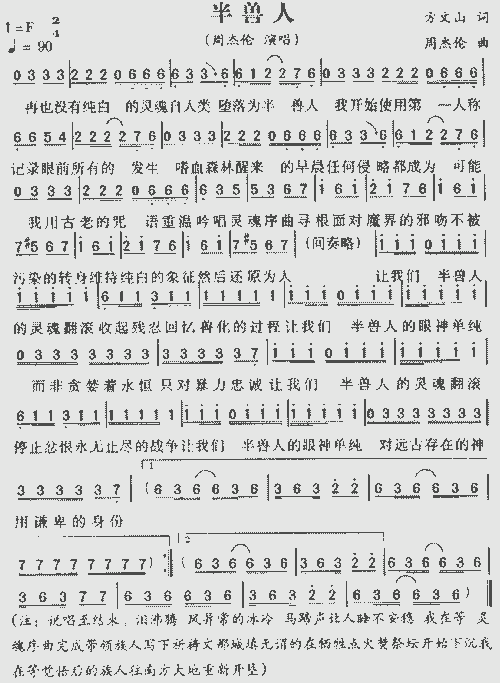 半兽人
1=F 2/4
♩=90
(周杰伦 演唱)
方文山 词
周杰伦 曲
0 3 3 3 | 2 2 2 0 6 6 6 | 6 3 3 6 | 6 1 2 2 7 6 | 0 3 3 3 | 2 2 2 2 0 6 6 6
再也没有纯白 的灵魂自人类 堕落为半 兽人 我开始使用第 一人称
6 6 5 4 | 2 2 2 2 7 6 | 0 3 3 3 | 2 2 2 0 6 6 6 | 6 3 3 6 | 6 1 2 2 7 6
记录眼前所有的 发生 嗜血森林醒来 的早晨任何侵略都成为 可能
0 3 3 3 | 2 2 2 0 6 6 6 | 6 3 3 6 | 1 6 1 | 2 1 7 6 | 1 6 1
我用古老的咒 语重温吟唱灵魂序曲寻根面对魔界的邪吻不被
7 #5 6 7 | 1 6 1 | 2 1 7 6 | 1 6 1 | 7 #5 6 7 | (间奏略) | 1 1 1 0 1 1
污染的转身维持纯白的象征然后还原为人 让我们 半兽人
1 1 1 1 1 | 6 1 1 3 1 1 | 1 1 1 1 1 | 1 1 1 0 1 1 | 1 1 1 1 1
的灵魂翻滚收起残忍回忆兽化的过程让我们 半兽人的眼神单纯
0 3 3 3 3 3 3 3 3 | 3 3 3 3 3 7 | 1 1 1 0 1 1 | 1 1 1 1 1
而非贪婪着永恒只对暴力忠诚让我们 半兽人的灵魂翻滚
6 1 1 3 1 1 | 1 1 1 1 1 | 1 1 1 0 1 1 | 1 1 1 1 1 | 0 3 3 3 3 3 3 3 3
停止忿恨永无止尽的战争让我们 半兽人的眼神单纯 对远古存在的神
1
3 3 3 3 3 7 | (6 3 6 6 3 6 | 3 6 3 2 2 | 6 3 6 6 3 6
用谦卑的身份
2
7 7 7 7 7 7 7 7) :| (6 3 6 6 3 6 | 3 6 3 2 2 | 6 3 6 6 3 6
3 6 3 7 | 6 3 6 6 3 6 | 3 6 3 2 2 | 6 3 6 6 3 6) |
(注：说唱至结束，泪沸腾 风异常的冰冷 马蹄声让人睡不安稳 我在等 灵
魂序曲完成带领族人写下祈祷文那城墙无谓的在牺牲点火赞祭坛开始下沉我
在等觉悟后的族人往南方大地重新开垦)